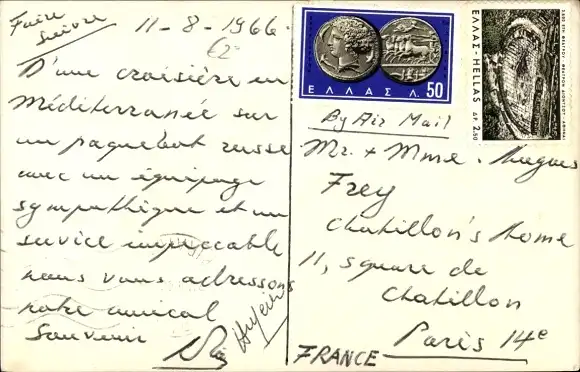 Faire
suivre
11-8-1966
D'une croisière en
Méditerranée sur
un paquebot russe
avec un équipage
sympathique et un
service impeccable
nous vous adressons
notre amical
Souvenir
ΕΛΛΑΣ Λ. 50
ΕΛΛΑΣ-HELLAS ΔΡ. 2.50
By Air Mail
Mr. + Mme. Hugues
Frey
Chatillon's Home
11, square de
Chatillon
Paris 14e
FRANCE